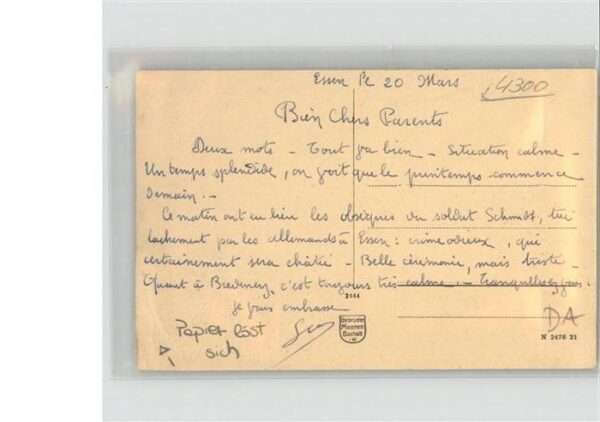 Essen le 20 Mars
4300
Bien Chers Parents
Deux mots - Tout va bien - Situation calme -
Un temps splendide, on voit que le printemps commence
demain. -
Ce matin ont eu lieu les obsèques du soldat Schmidt, tué
lachement par les allemands à Essen : crime odieux, qui
certainement sera châtié - Belle cérémonie, mais triste -
Quant à Bredeney, c'est toujours très calme. - Tranquillisez vous.
je vous embrasse
2444
Papier löst
sich
DA
N 2476 21